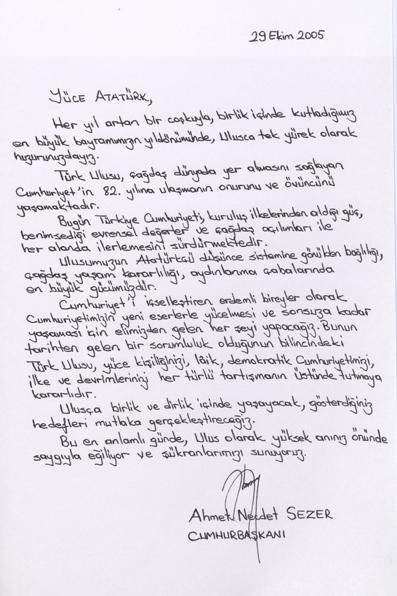 29 Ekim 2005
YÜCE ATATÜRK,
Her yıl artan bir coşkuyla, birlik içinde kutladığımız
en büyük bayramımızın yıldönümünde, Ulusca tek yürek olarak
huzurunuzdayız.
Türk Ulusu, çağdaş dünyada yer almasını sağlayan
Cumhuriyet'in 82. yılına ulaşmanın onurunu ve övüncünü
yaşamaktadır.
Bugün Türkiye Cumhuriyeti, kuruluş ilkelerinden aldığı güç,
benimsediği evrensel değerler ve çağdaş açılımları ile
her alanda ilerlemesini sürdürmektedir.
Ulusumuzun Atatürkçü düşünce sistemine gönülden bağlılığı,
çağdaş yaşam kararlılığı, aydınlanma çabalarında
en büyük gücümüzdür.
Cumhuriyet'i içselleştiren erdemli bireyler olarak
Cumhuriyetimizin yeni eserlerle yükselmesi ve sonsuza kadar
yaşaması için elimizden gelen her şeyi yapacağız. Bunun
tarihten gelen bir sorumluluk olduğunun bilincindeki
Türk Ulusu, yüce kişiliğinizi, lâik, demokratik Cumhuriyetinizi,
ilke ve devrimlerinizi her türlü tartışmanın üstünde tutmaya
kararlıdır.
Ulusça birlik ve dirlik içinde yaşayacak, gösterdiğiniz
hedefleri mutlaka gerçekleştireceğiz.
Bu en anlamlı günde, Ulus olarak yüksek anınız önünde
saygıyla eğiliyor ve şükranlarımızı sunuyoruz.
Ahmet Necdet SEZER
CUMHURBAŞKANI